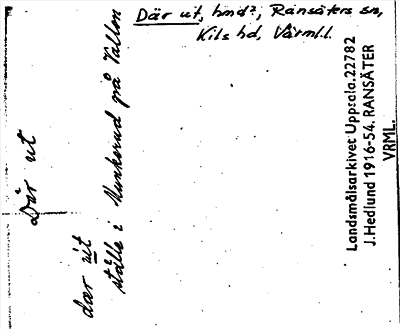 Där ut, hmd?, Ransäters sn,
Kils hd, Värml.
Där ut
dær ut
ställe i Munkerud på Vallen
Landsmålsarkivet Uppsala.22782
J.Hedlund 1916-54. RANSÄTER
VRML.